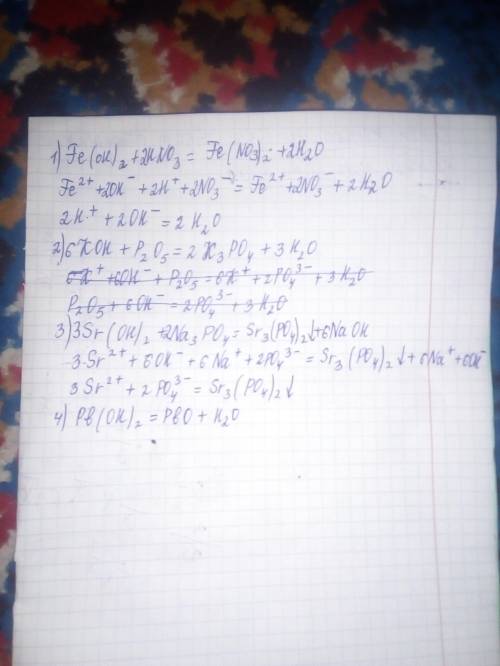 1) Fe(OH)₂ + 2HNO₃ = Fe(NO₃)₂ + 2H₂O
Fe²⁺ + 2OH⁻ + 2H⁺ + 2NO₃⁻ = Fe²⁺ + 2NO₃⁻ + 2H₂O
2H⁺ + 2OH⁻ = 2H₂O
2) 6KOH + P₂O₅ = 2K₃PO₄ + 3H₂O
6K⁺ + 6OH⁻ + P₂O₅ = 6K⁺ + 2PO₄³⁻ + 3H₂O
P₂O₅ + 6OH⁻ = 2PO₄³⁻ + 3H₂O
3) 3Sr(OH)₂ + 2Na₃PO₄ = Sr₃(PO₄)₂↓ + 6NaOH
3Sr²⁺ + 6OH⁻ + 6Na⁺ + 2PO₄³⁻ = Sr₃(PO₄)₂↓ + 6Na⁺ + 6OH⁻
3Sr²⁺ + 2PO₄³⁻ = Sr₃(PO₄)₂↓
4) Pb(OH)₂ = PbO + H₂O